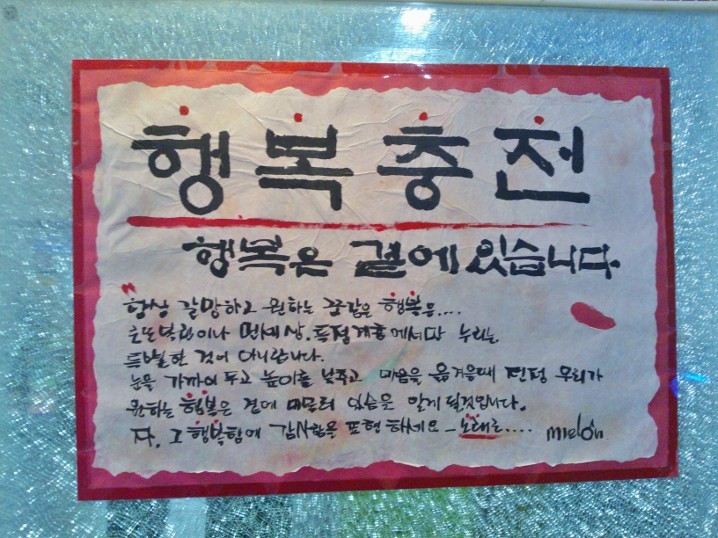 행복충전
행복은 곁에 있습니다.
"항상 갈망하고 원하는 꿈같은 행복은....
무릉도원이나 딴세상. 특정계층에서만 누리는
특별한 것이 아니랍니다.
눈을 가까이 두고 높이를 낮추고 마음을 옮겨올때 진정 우리가
원하는 행복은 곁에 머물러 있음을 알게 될것입니다.
자. 그 행복함에 감사함을 표현하세요 - 노래로....
melon